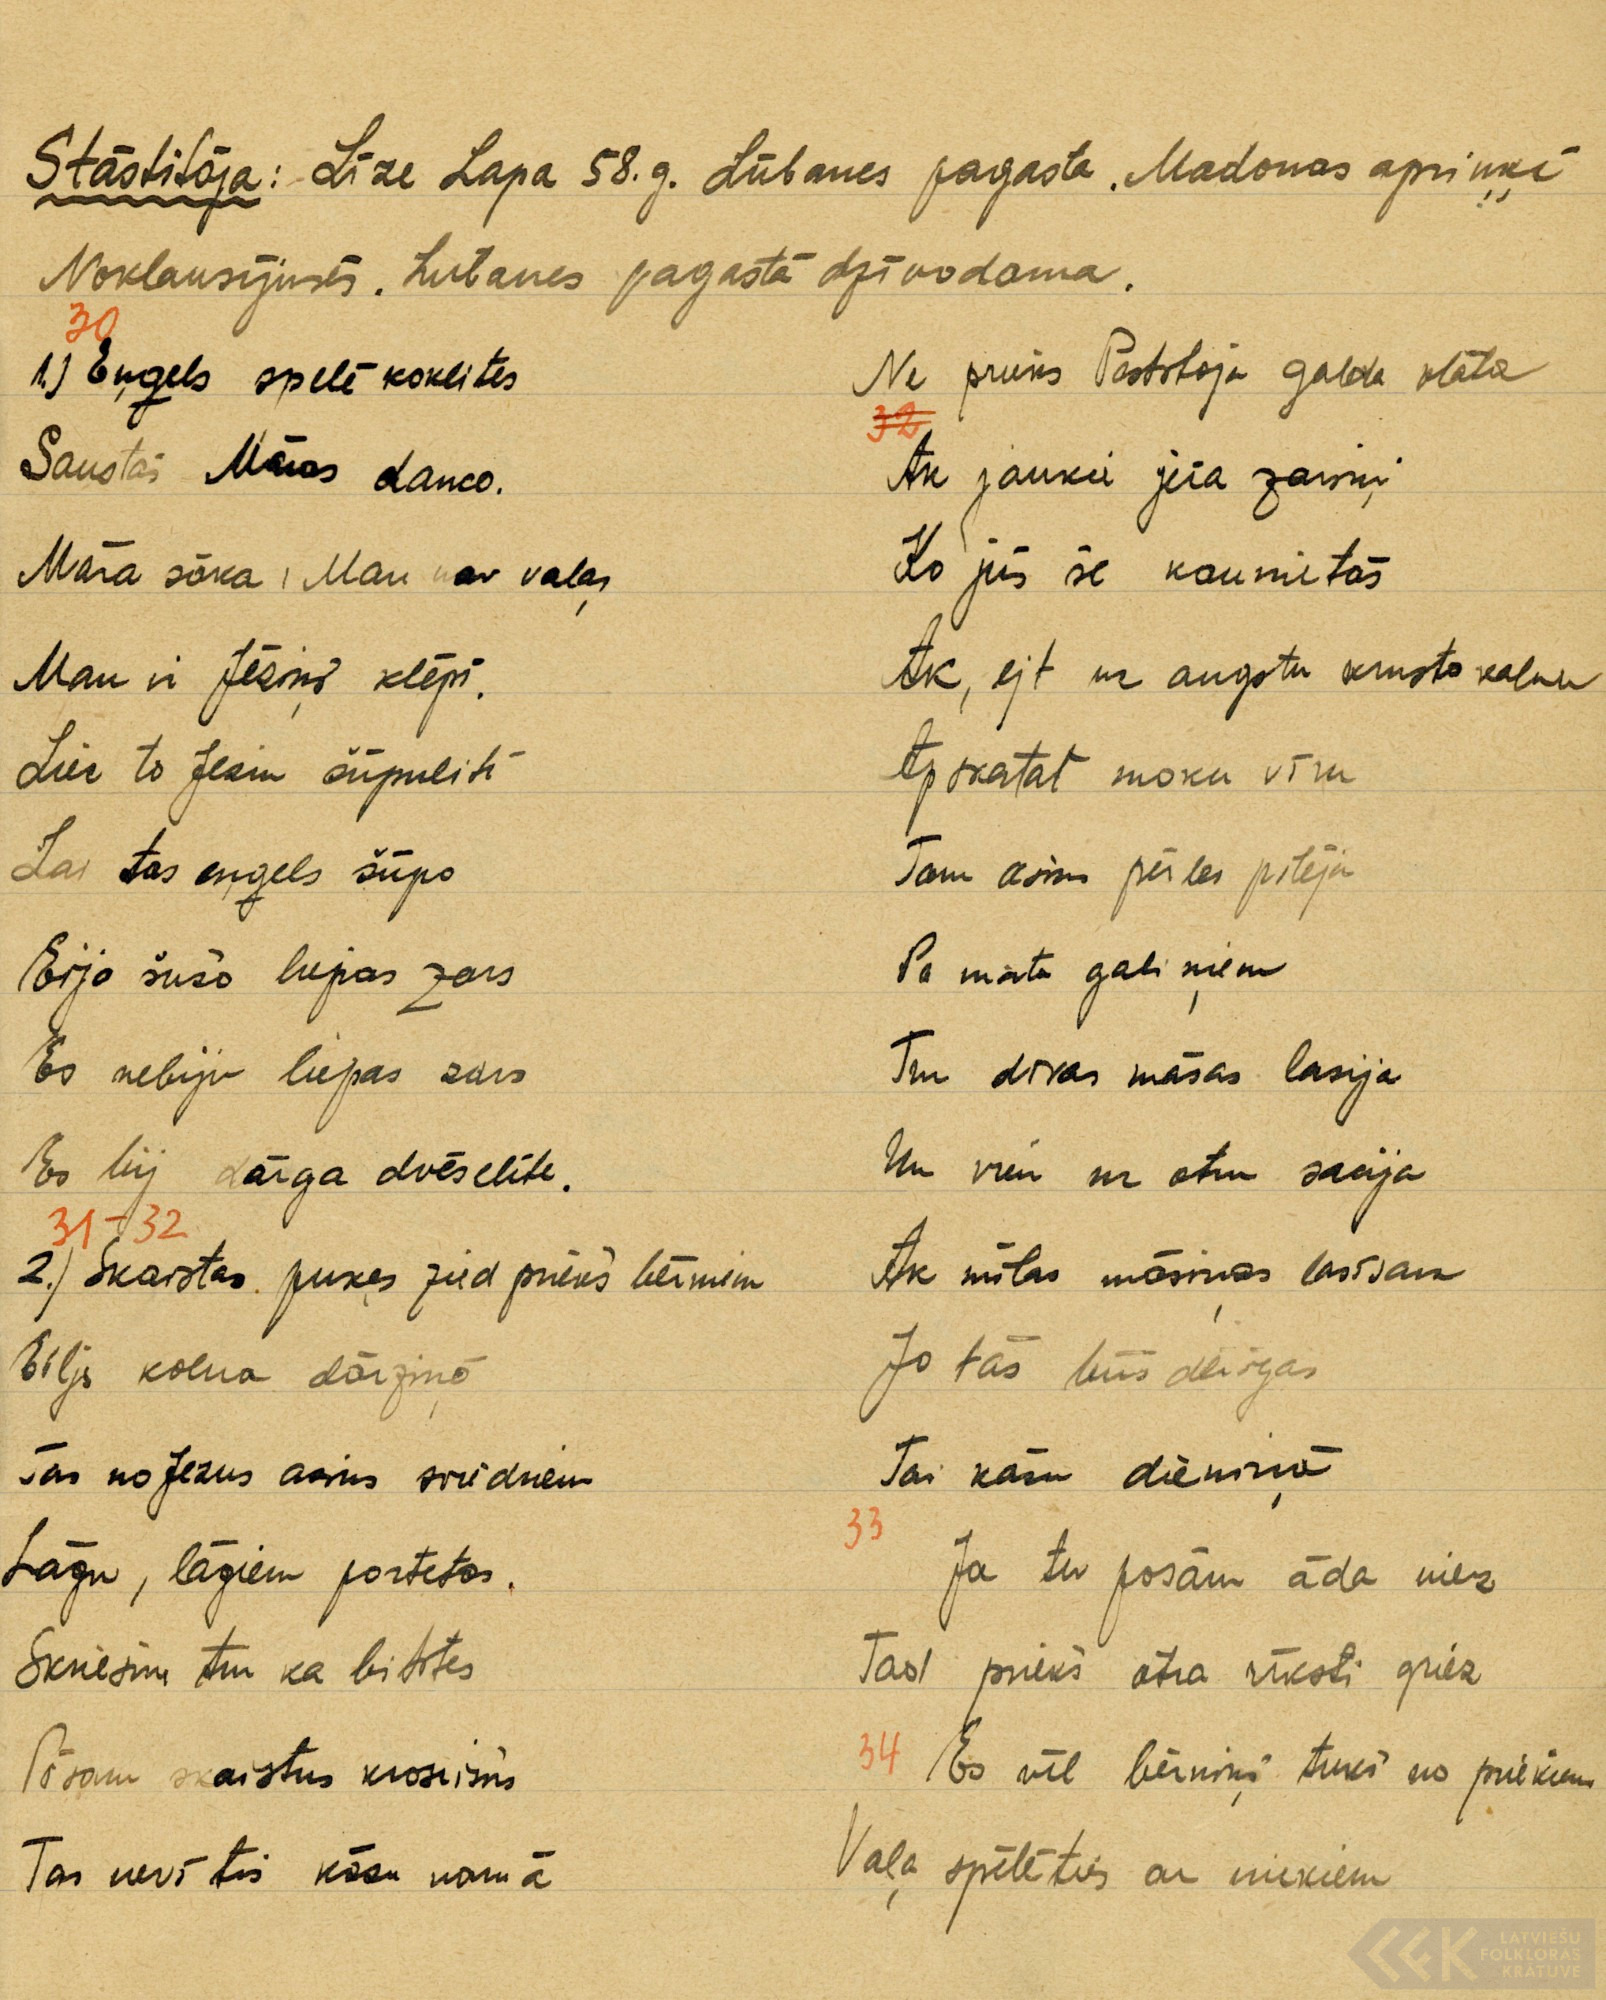 Stāstitāja: Līze Lapa 58.g. Lūbanes pagasta. Madonas apriņķī
Noklausījusēs. Lubanes pagastā dzīvodama.
30
1.) Eņģels spelē koklites
Saustās Māras danco.
Māra sāka, Man nav vaļas
Man ir Jēziņš klēpī.
Liec to Jezin šūpulitī
Lai tas eņģels šūpo
Eijo šušo liepas zars
Es nebiju liepas zars
Es bij dārga dvēselite.
31-32
2.) Skaistas puķes zied priekš bērniem
Eiļļs kolna dārziņā
Tās no Jezus asins sviedriem
Lāgu, lāgiem
Skriesim tur ka bitītes
Pīsam skaistus kronīšus
Tas nevītīs kāzu namā
Ne priekš Pestitāja galda klāta
32
Ak jaukie jēra zariņi
Ko jūs še kaunietās
Ak, ejt uz augstu krusta kalnu
Apskatat moku vīru
Tam asins pērles pilēja
Pa matu galiņiem
Tur divas māsas lasija
Un vien uz otru sacija
Ak mīlas māsiņas lasisam
Jo tās būs derīgas
Tai kāzu dieniņā
33
Ja tu posām āda niez
Tad priekš otra rīksti griez
34 Es vēl bērniņš tukš no priekiem
Vaļa spēlēties ar niekiem
LATVIEŠU
FOLKLORAS
KRĀTUVE